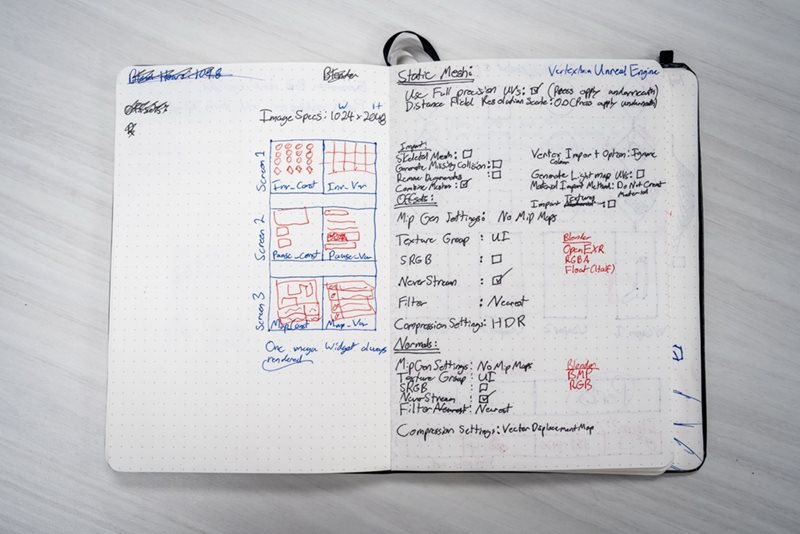 Blender
Image Specs: 1024 x 2048
W H
Screen 1
Inv_Const Inv_Var
Screen 2
Pause_Const Pause_Var
Screen 3
Map_Const Map_Var
One mega Widget always
rendered
Static Mesh:
Unreal Engine
Use Full precision UVs: ☑ (Press apply underneath)
Distance Field Resolution Scale: 0.0 (Press apply underneath)
Import:
Skeletal Mesh: ☐
Generate Missing Collision: ☐
Remove Degenerates : ☐
Combine Meshes : ☑
Vertex Import Option: Ignore
Color
Generate Lightmap UVs: ☐
Material Import Method: Do Not Create
Material
Import Textures : ☐
Offsets:
Mip Gen Settings: No Mip Maps
Texture Group : UI
SRGB : ☐
Never Stream : ☑
Filter : Nearest
Compression Settings: HDR
Blender
OpenEXR
RGBA
Float (Half)
Normals:
Mip Gen Settings: No Mip Maps
Texture Group : UI
SRGB : ☐
Never Stream : ☑
Filter Nearest : Nearest
Compression Settings: Vector Displacement Map
Blender
BMP
RGB